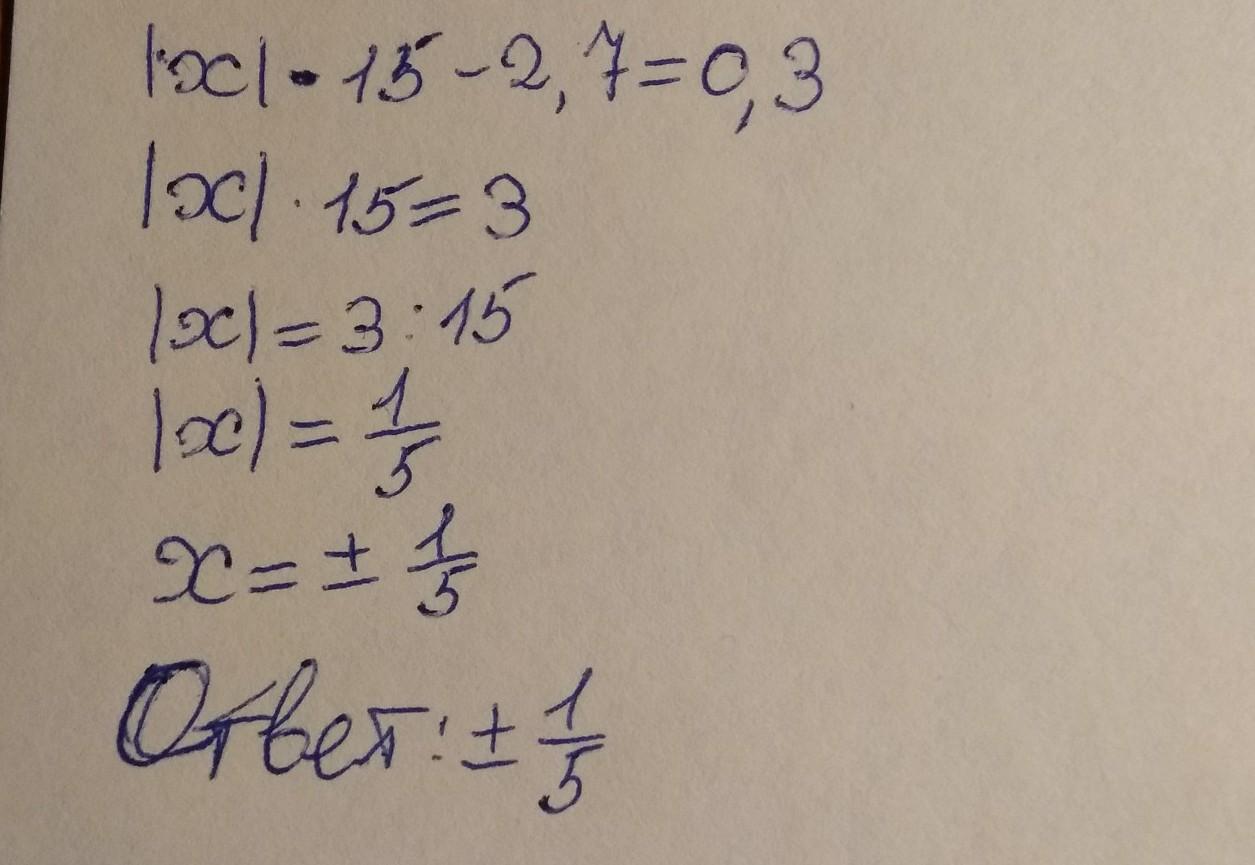 |x| · 15 - 2,7 = 0,3
|x| · 15 = 3
|x| = 3 : 15
|x| = 1/5
x = ± 1/5
Ответ: ± 1/5